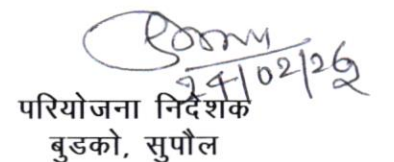 24/02/26
परियोजना निदेशक
बुडको, सुपौल